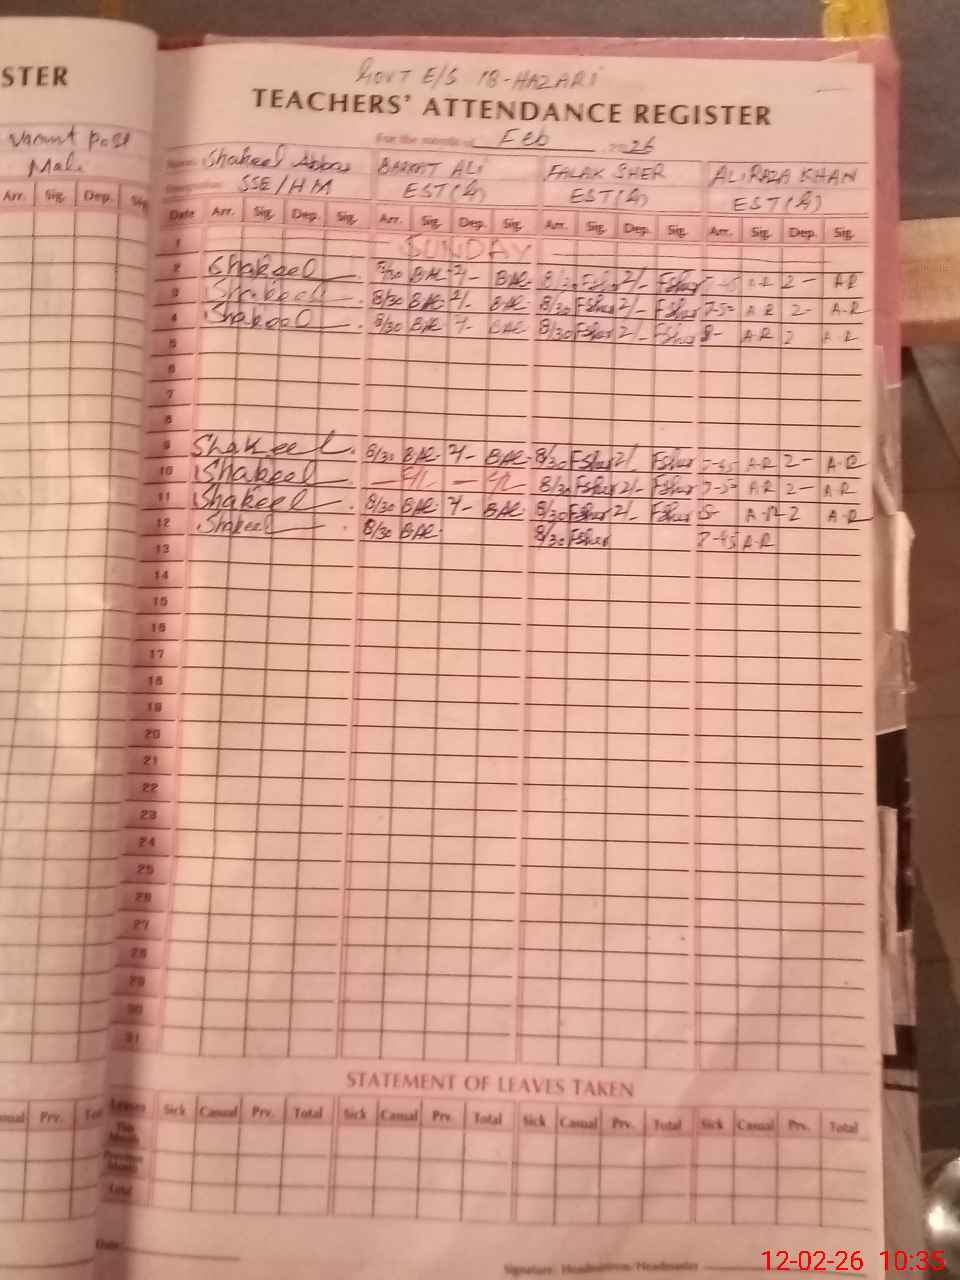 STER
Vacant Post
Male
Arr. Sig. Dep. Sig
GOVT E/S 18-HAZARI
TEACHERS' ATTENDANCE REGISTER
For the month of Feb 2026
Name Shakeel Abbas BARKAT ALI FALAK SHER ALI RAZA KHAN
Designation SSE/HM EST(G) EST(G) EST(G)
Date Arr. Sig. Dep. Sig. Arr. Sig. Dep. Sig. Arr. Sig. Dep. Sig. Arr. Sig. Dep. Sig.
1 SUNDAY
2 Shakeel 8/30 BAL 2/- BAL 8/30 Fsher 2/- Fsher 7-45 A-R 2- AR
3 Shakeel 8/30 BAL 2/- BAL 8/30 Fsher 2/- Fsher 7-50 A R 2- A-R
4 Shakeel 8/30 BAL 2/- BAL 8/30 Fsher 2/- Fsher 8- A-R 2 A R
5
6
7
8
9 Shakeel 8/30 BAL 2/- BAL 8/30 Fsher 2/- Fsher 7-45 A-R 2- A-R
10 Shakeel 8/30 Fsher 2/- Fsher 7-50 A R 2- A R
11 Shakeel 8/30 BAL 2/- BAL 8/30 Fsher 2/- Fsher 8- A-R 2 A-R
12 Shakeel 8/30 BAL 8/30 Fsher 7-45 A-R
13
14
15
16
17
18
19
20
21
22
23
24
25
26
27
28
29
30
31
STATEMENT OF LEAVES TAKEN
Casual Prv. Total
Leaves Sick Casual Prv. Total Sick Casual Prv. Total Sick Casual Prv. Total Sick Casual Prv. Total
This Month
Previous Month
Total
Date:
Signature: Headmistress/Headmaster
12-02-26 10:35